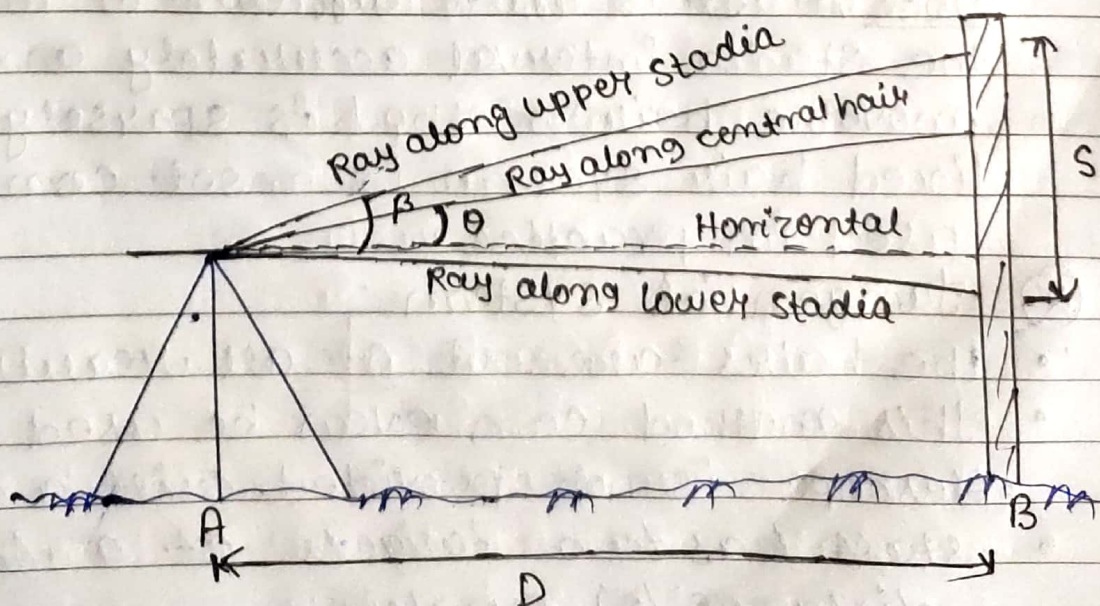 Ray along upper stadia
Ray along central hair
S
β
θ
Horizontal
Ray along lower stadia
A
B
D